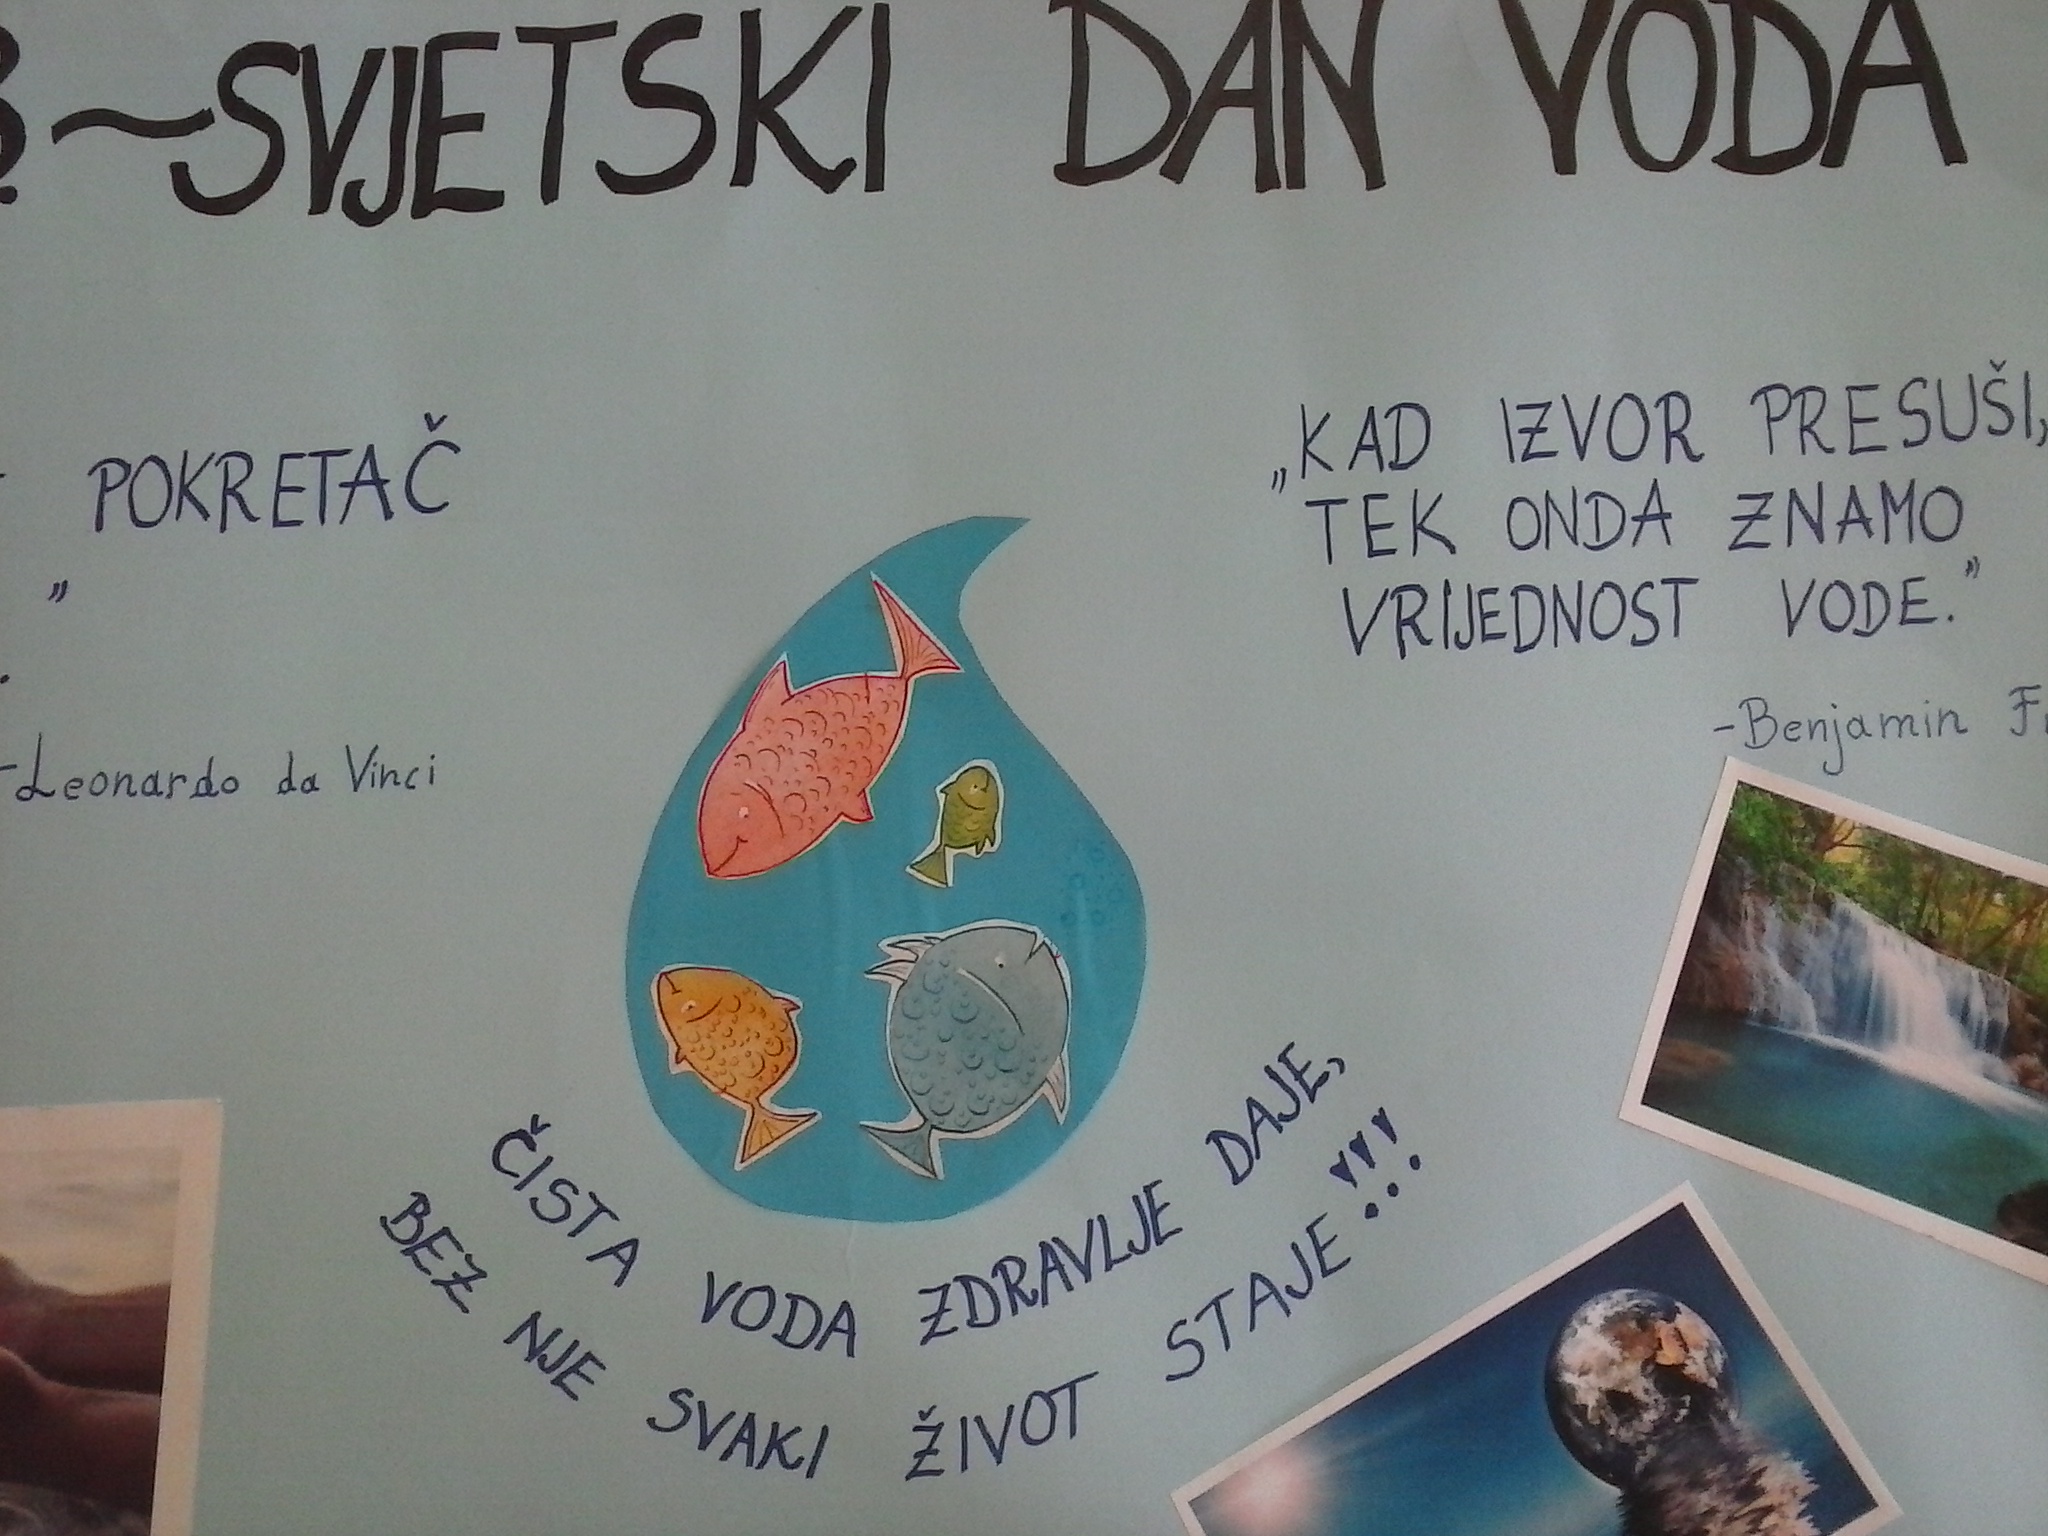 ~SVJETSKI DAN VODA
POKRETAČ
”
-Leonardo da Vinci
„KAD IZVOR PRESUŠI,
TEK ONDA ZNAMO
VRIJEDNOST VODE.”
-Benjamin
ČISTA VODA ZDRAVLJE DAJE,
BEZ NJE SVAKI ŽIVOT STAJE!!!